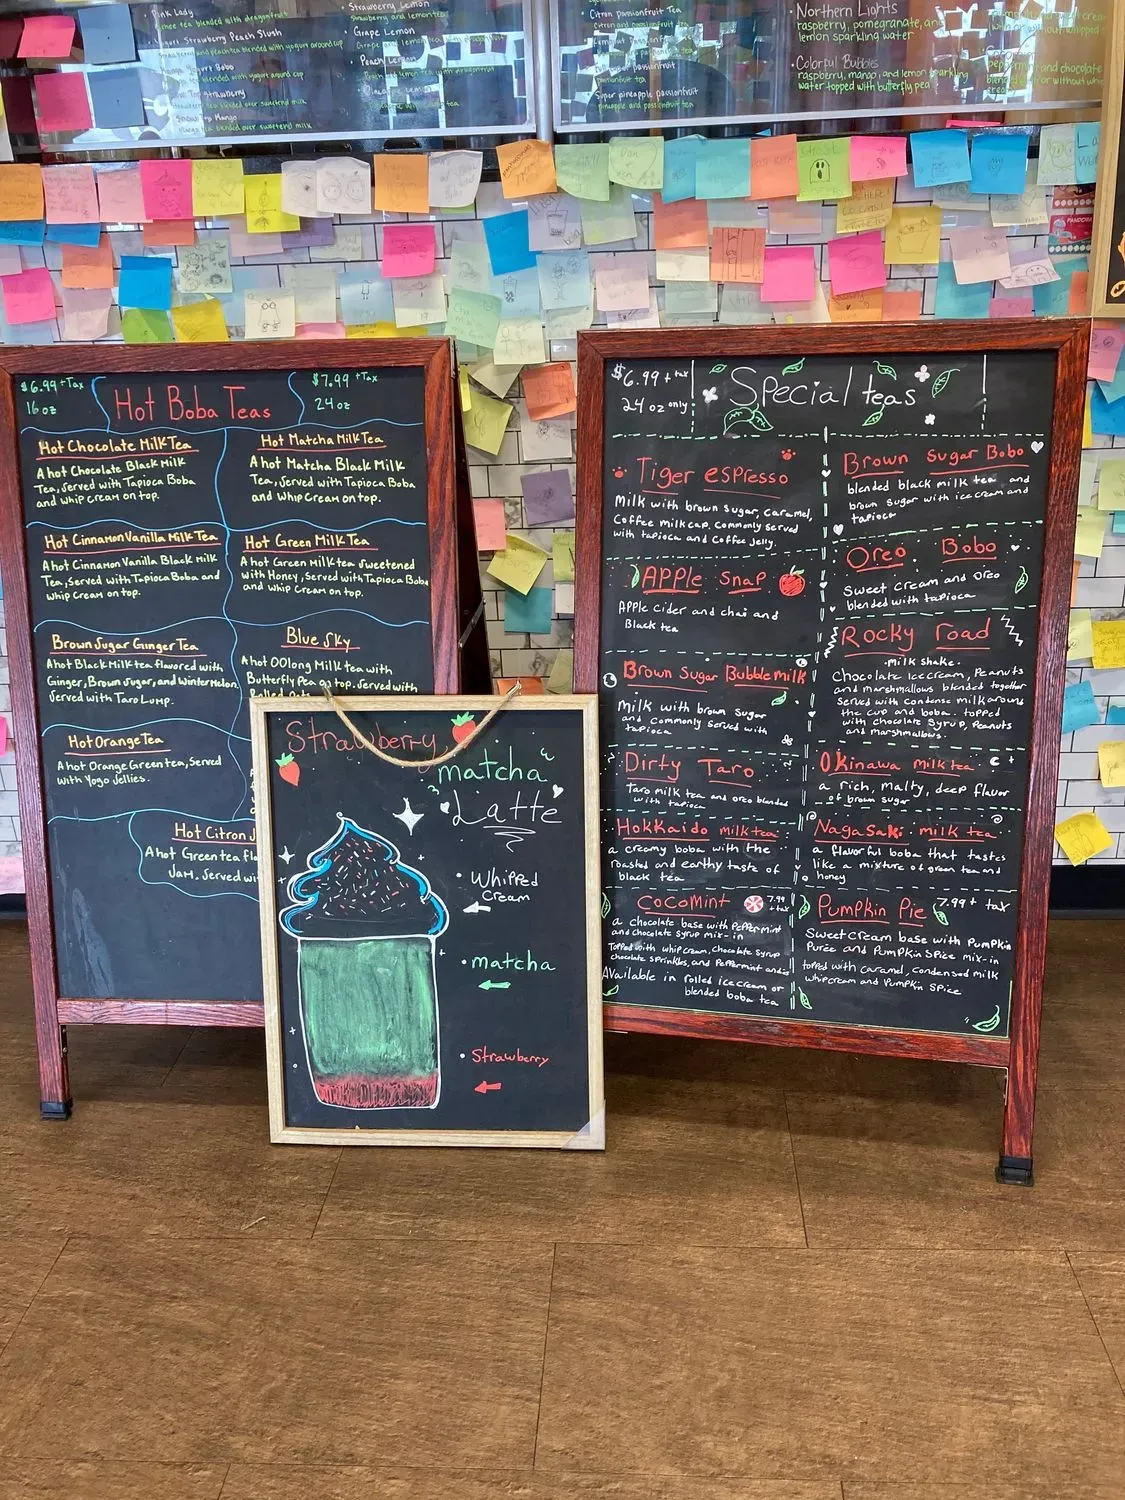 Pink Lady
Strawberry Lemon
Strawberry and lemon tea
Grape Lemon
Peach Lemon
Snowy Mango
Mango tea blended over sweetened milk
Citron passionfruit Tea
passionfruit tea
Super pineapple passionfruit
pineapple and passionfruit tea
• Northern Lights
raspberry, pomegranate, and
lemon sparkling water
• Colorful Bubbles
raspberry, mango, and lemon sparkling
water topped with butterfly pea
$6.99 +Tax
16 oz
Hot Boba Teas
$7.99 +Tax
24 oz
Hot Chocolate Milk Tea
A hot Chocolate Black Milk
Tea, Served with Tapioca Boba
and whip cream on top.
Hot Matcha Milk Tea
A hot Matcha Black Milk
Tea, Served with Tapioca Boba
and Whip Cream on top.
Hot Cinnamon Vanilla Milk Tea
A hot Cinnamon Vanilla Black Milk
Tea, Served with Tapioca Boba and
whip Cream on top.
Hot Green Milk Tea
A hot Green Milk tea sweetened
with Honey, Served with Tapioca Boba
and whip Cream on top.
Brown Sugar Ginger Tea
A hot Black Milk tea flavored with
Ginger, Brown Sugar, and Winter Melon.
Served with Taro Lump.
Blue Sky
A hot OOlong Milk tea with
Butterfly Pea on top. Served with
Rolled Oats
Hot Orange Tea
A hot Orange Green tea, Served
with Yogo Jellies.
Hot Citron J
A hot Green tea fla
Jam. Served wi
Strawberry
matcha
Latte
• Whipped
Cream
• matcha
• Strawberry
$6.99 + tax
24 oz only
Special teas
Tiger espresso
Milk with brown sugar, caramel,
Coffee milk cap, commonly served
with tapioca and Coffee jelly.
Apple Snap
Apple cider and chai and
Black tea
Brown Sugar Bubble milk
milk with brown sugar
and commonly served with
tapioca
Dirty Taro
Taro milk tea and oreo blended
with tapioca
Hokkaido milk tea
a creamy boba with the
roasted and earthy taste of
black tea
CocoMint
7.99
+ tax
a chocolate base with peppermint
and chocolate syrup mix-in
Topped with whip cream, chocolate syrup
chocolate sprinkles, and peppermint candies
Available in rolled ice cream or
blended boba tea
Brown Sugar Bobo
blended black milk tea and
brown sugar with ice cream and
tapioca
Oreo Bobo
Sweet cream and Oreo
blended with tapioca
Rocky road
•milk shake•
Chocolate Icecream, Peanuts
and marshmallows blended together
Served with condense milk around
the cup and boba. topped
with chocolate syrup, Peanuts
and marshmallows.
Okinawa milk tea
a rich, malty, deep flavor
of brown sugar
Nagasaki milk tea
a flavorful boba that tastes
like a mixture of green tea and
honey
Pumpkin Pie
7.99 + tax
Sweet cream base with Pumpkin
Puree and Pumpkin Spice mix-in
topped with caramel, condensed milk
whip cream and Pumpkin Spice